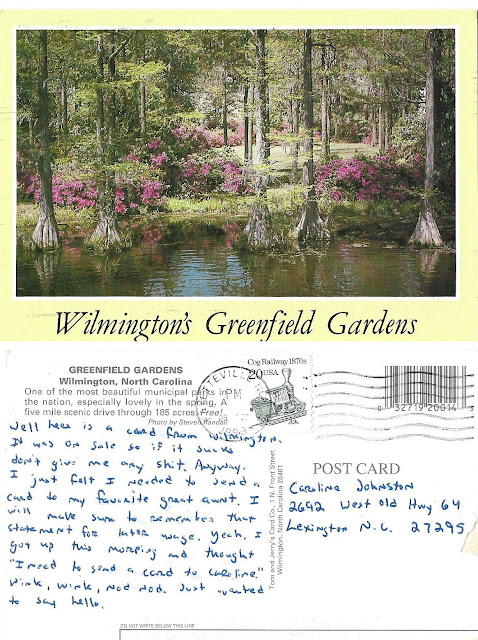 Wilmington's Greenfield Gardens
GREENFIELD GARDENS
Wilmington, North Carolina
One of the most beautiful municipal parks in
the nation, especially lovely in the spring. A
five mile scenic drive through 185 acres. Free!
Photo by Steven Randall
Well here is a card from Wilmington.
It was on sale so if it sucks
don't give me any shit. Anyway.
I just felt I needed to send a
card to my favorite great aunt. I
will make sure to remember that
statement for later usage. Yeah, I
got up this morning and thought
"I need to send a card to Caroline."
Wink, wink, nod nod. Just wanted
to say hello.
DO NOT WRITE BELOW THIS LINE
Tom and Jerry's Card Co., 1 N. Front Street
Wilmington, North Carolina 28401
PM
Cog Railway 1870s
20 USA
0 32719 20014
POST CARD
Caroline Johnston
2692 West Old Hwy 64
Lexington N.C. 27295